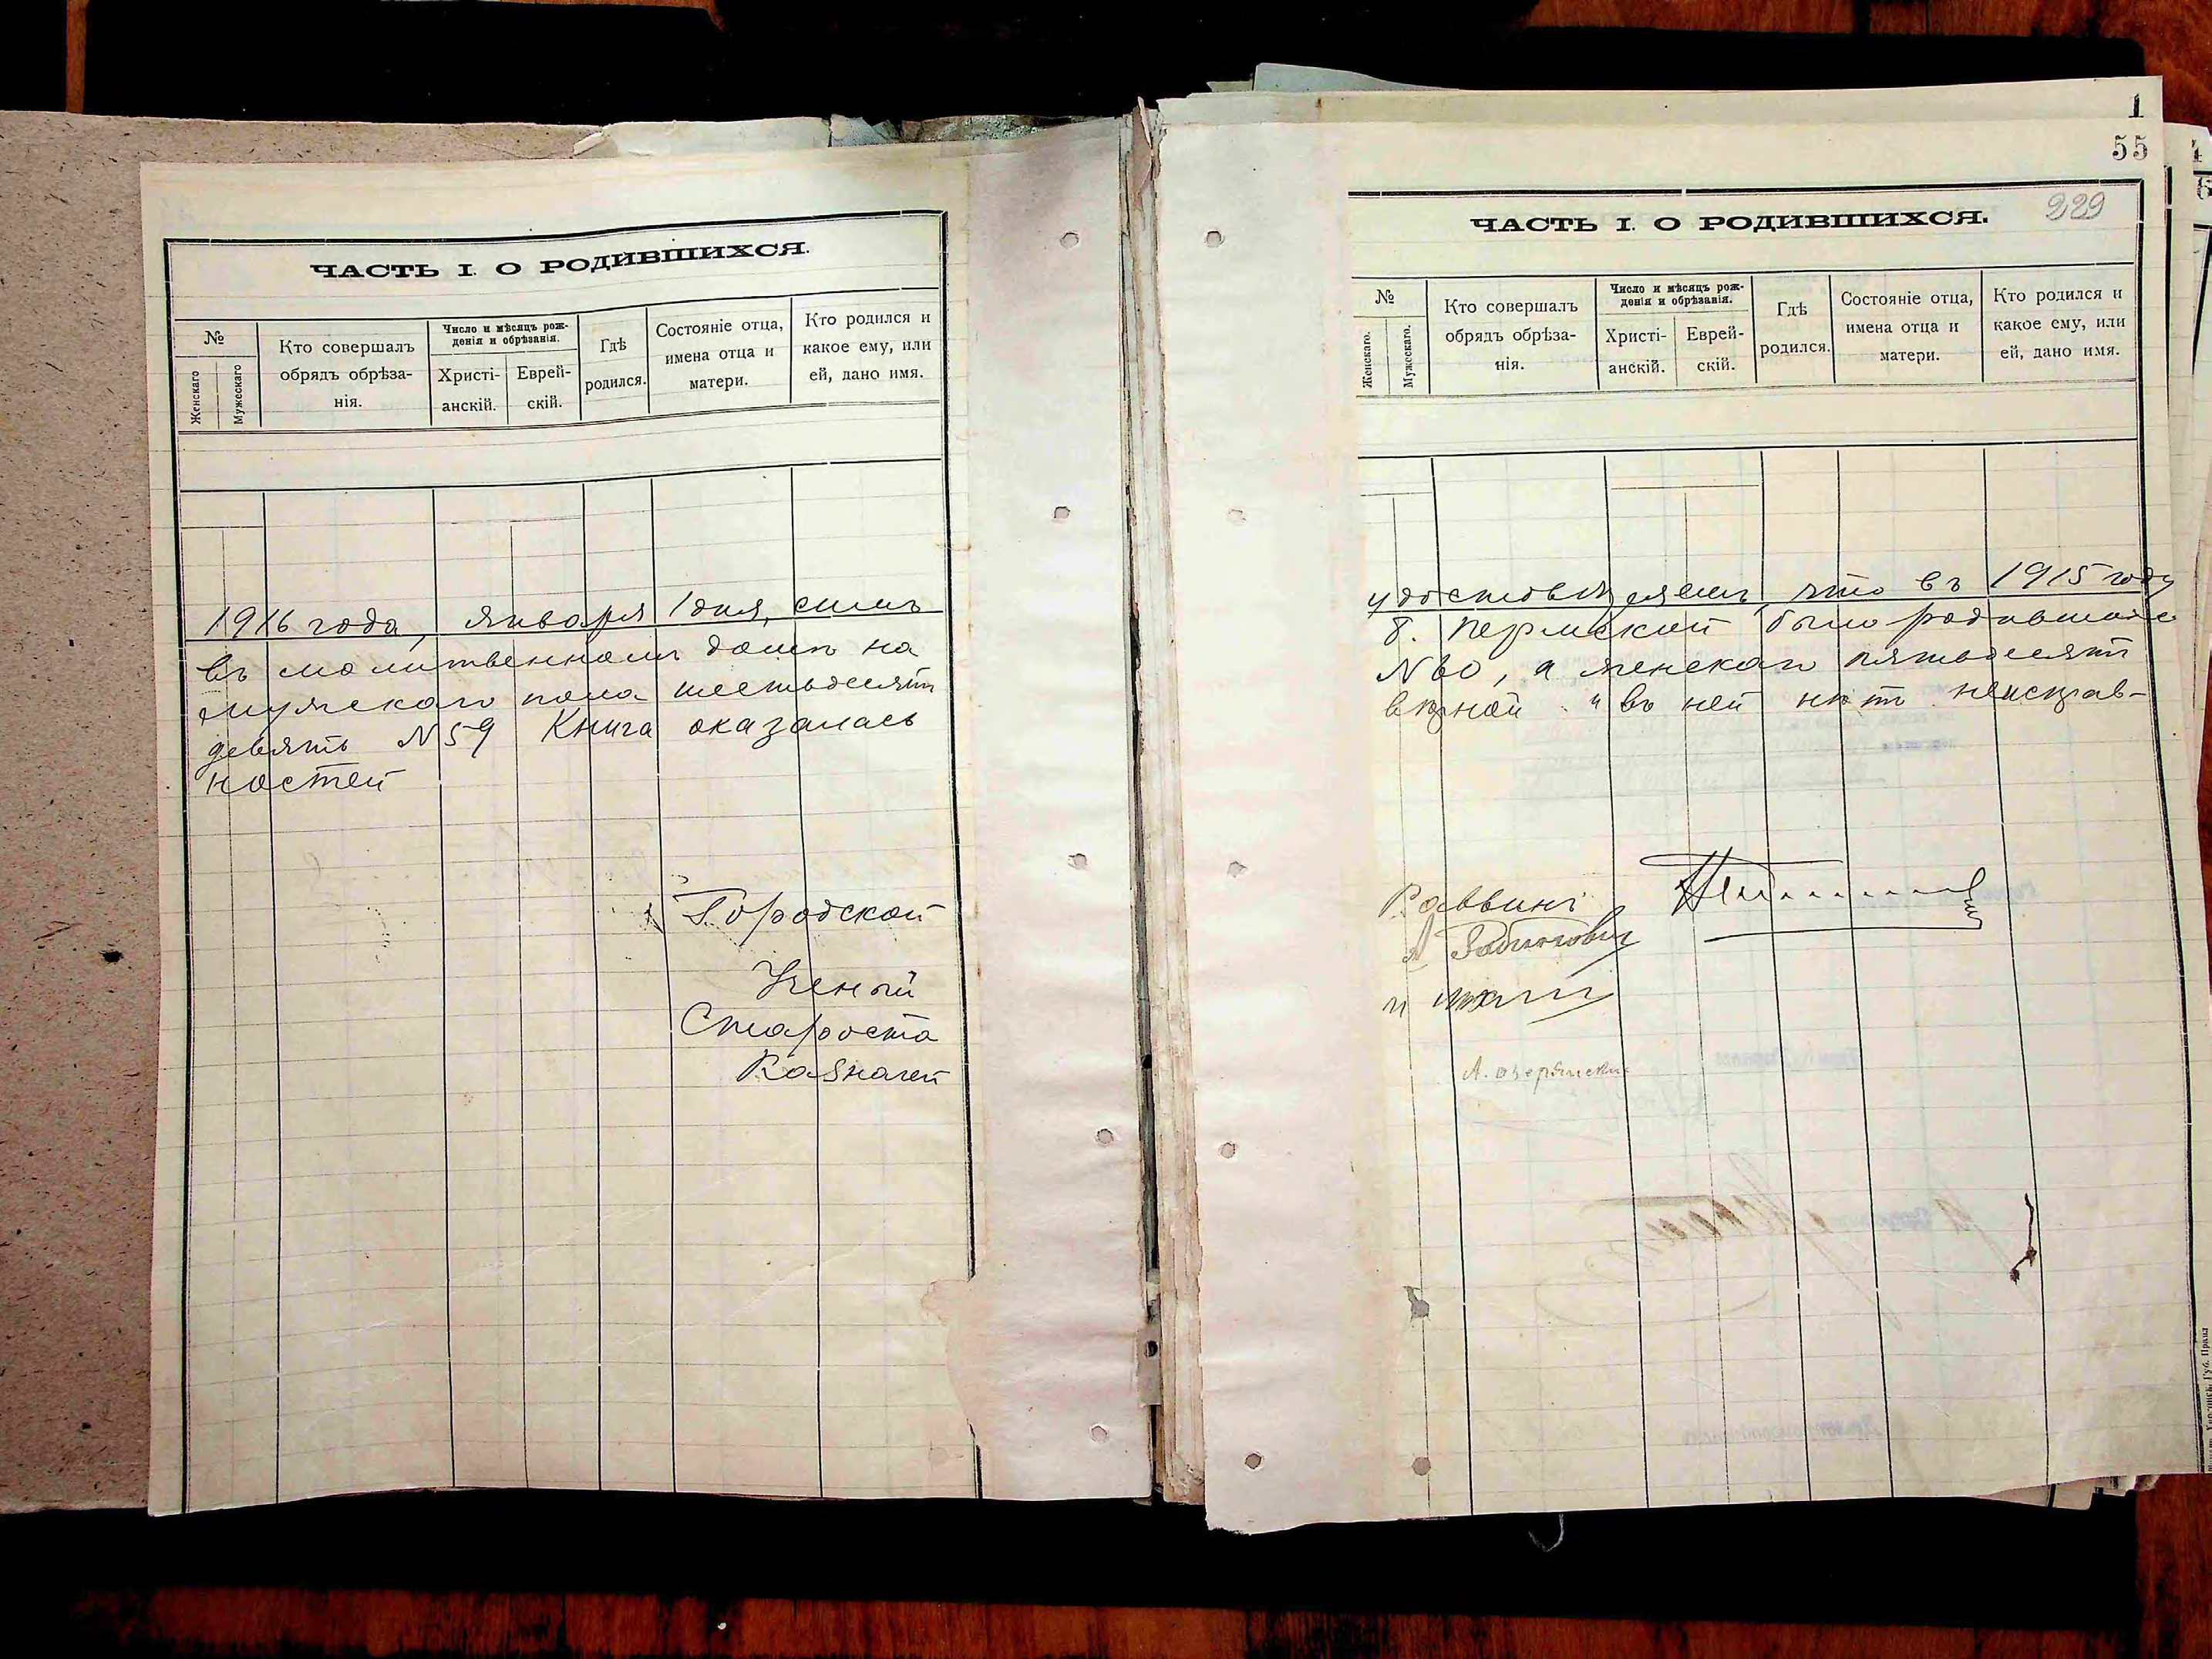 ЧАСТЬ I. О РОДИВШИХСЯ.
№
Женскаго
Мужескаго
Кто совершалъ
обрядъ обрѣза-
нія.
Число и мѣсяцъ рож-
денія и обрѣзанія.
Христі-
анскій.
Еврей-
скій.
Гдѣ
родился.
Состояніе отца,
имена отца и
матери.
Кто родился и
какое ему, или
ей, дано имя.
1916 года, января 1 дня, симъ
въ молитвенномъ домѣ на
мужескаго пола шестьдесятъ
девять N 59 Книга оказалась
ностей
Городской
Ученый
Староста
Казначей
1
55
229
ЧАСТЬ I. О РОДИВШИХСЯ.
№
Женскаго.
Мужескаго.
Кто совершалъ
обрядъ обрѣза-
нія.
Число и мѣсяцъ рож-
денія и обрѣзанія.
Христі-
анскій.
Еврей-
скій.
Гдѣ
родился.
Состояніе отца,
имена отца и
матери.
Кто родился и
какое ему, или
ей, дано имя.
удостовѣряемъ что въ 1915 году
Б. Пермской было родившихся
N 60, а женскаго пятьдесятъ
вѣрной и въ ней нѣтъ неисправ-
Раввинъ
Рабинович